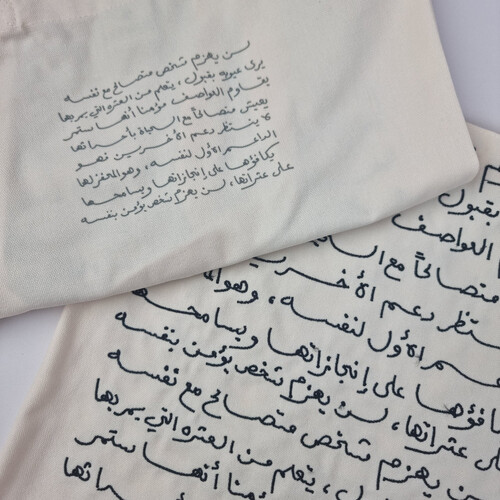 لن يهزم شخص متصالح مع نفسه
يرى عيوبه بقبول، يتعلم من الفتره التي يمر بها
يقاوم العواصف مؤمناً أنها ستمر
يعيش متصالحاً مع الحياة بأحداثها
لا ينتظر دعم الأخرين فهو
الداعم الأول لنفسه، وهو المحفز لها
يكافؤها على إنجازاتها ويسامحها
على عثراتها، لن يهزم شخص يؤمن بنفسه
بقبول
العواصف
متصالحاً مع
ينتظر دعم الأخرين
الأول لنفسه، وهو
يكافؤها على إنجازاتها ويسامحها
على عثراتها، لن يهزم شخص يؤمن بنفسه
لن يهزم شخص متصالح مع نفسه
بقبول، يتعلم من الفتره التي يمر بها
أنها ستمر